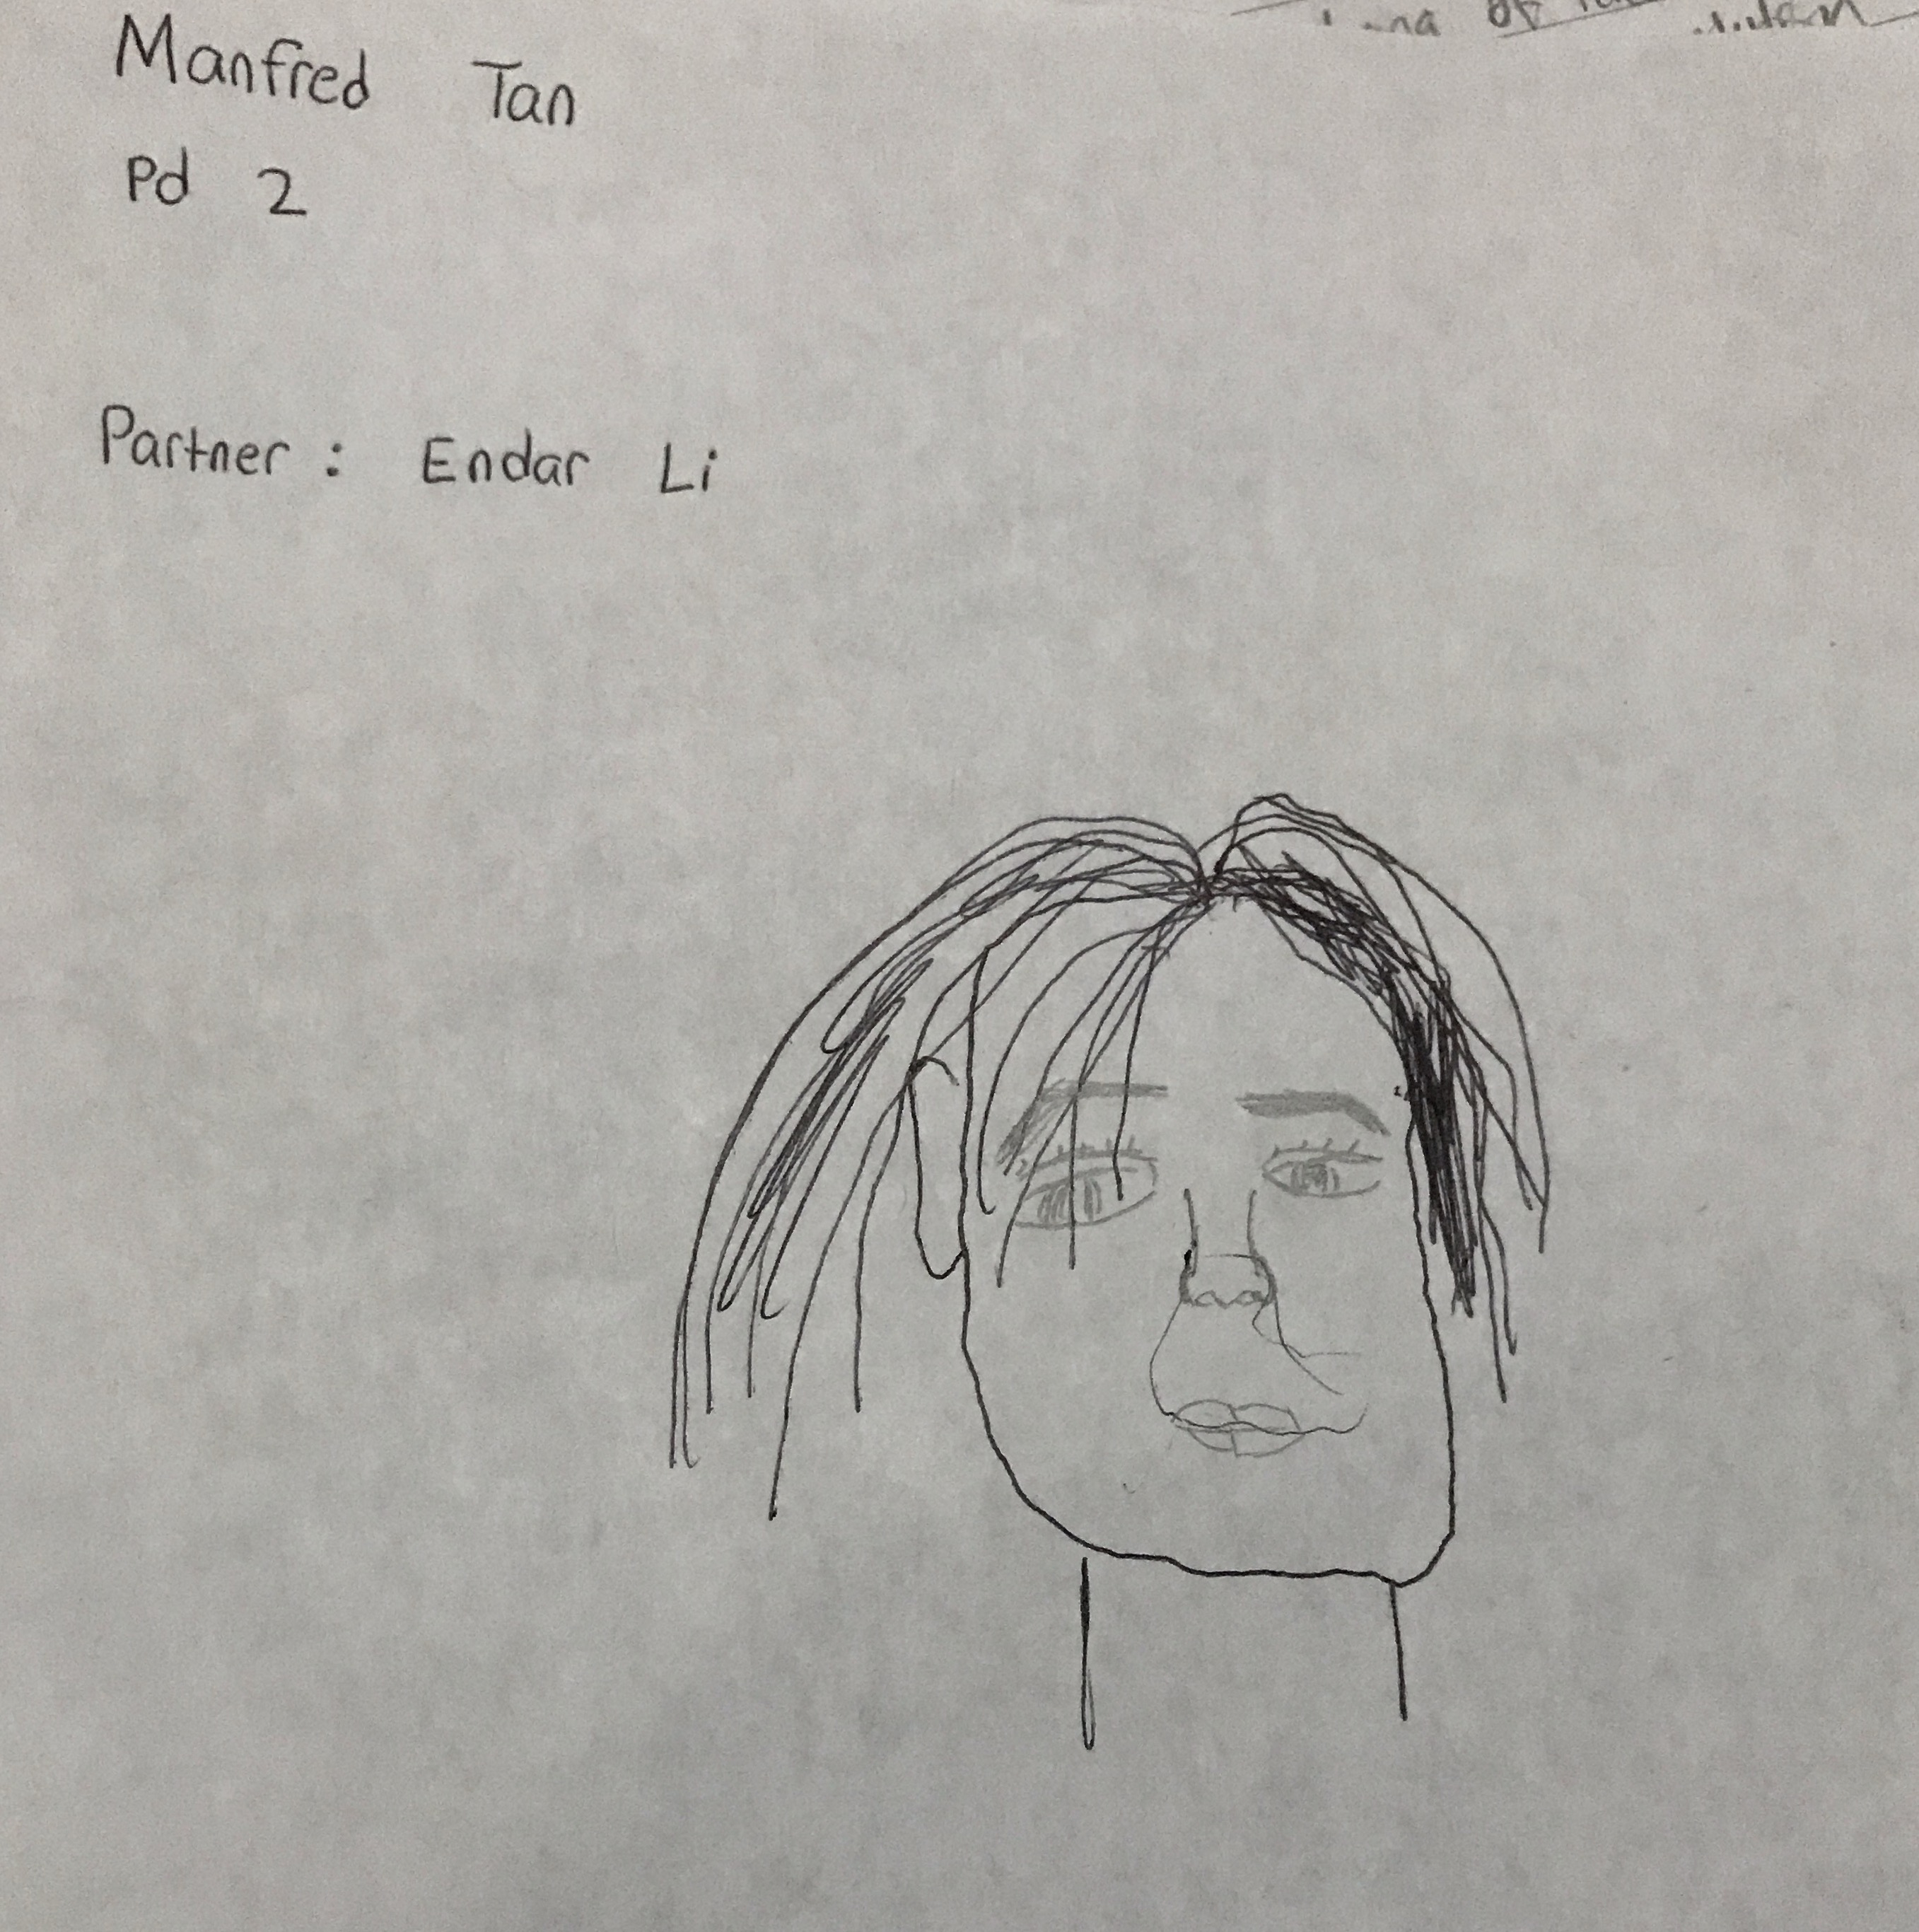 Manfred Tan
Pd 2
Partner : Endar Li